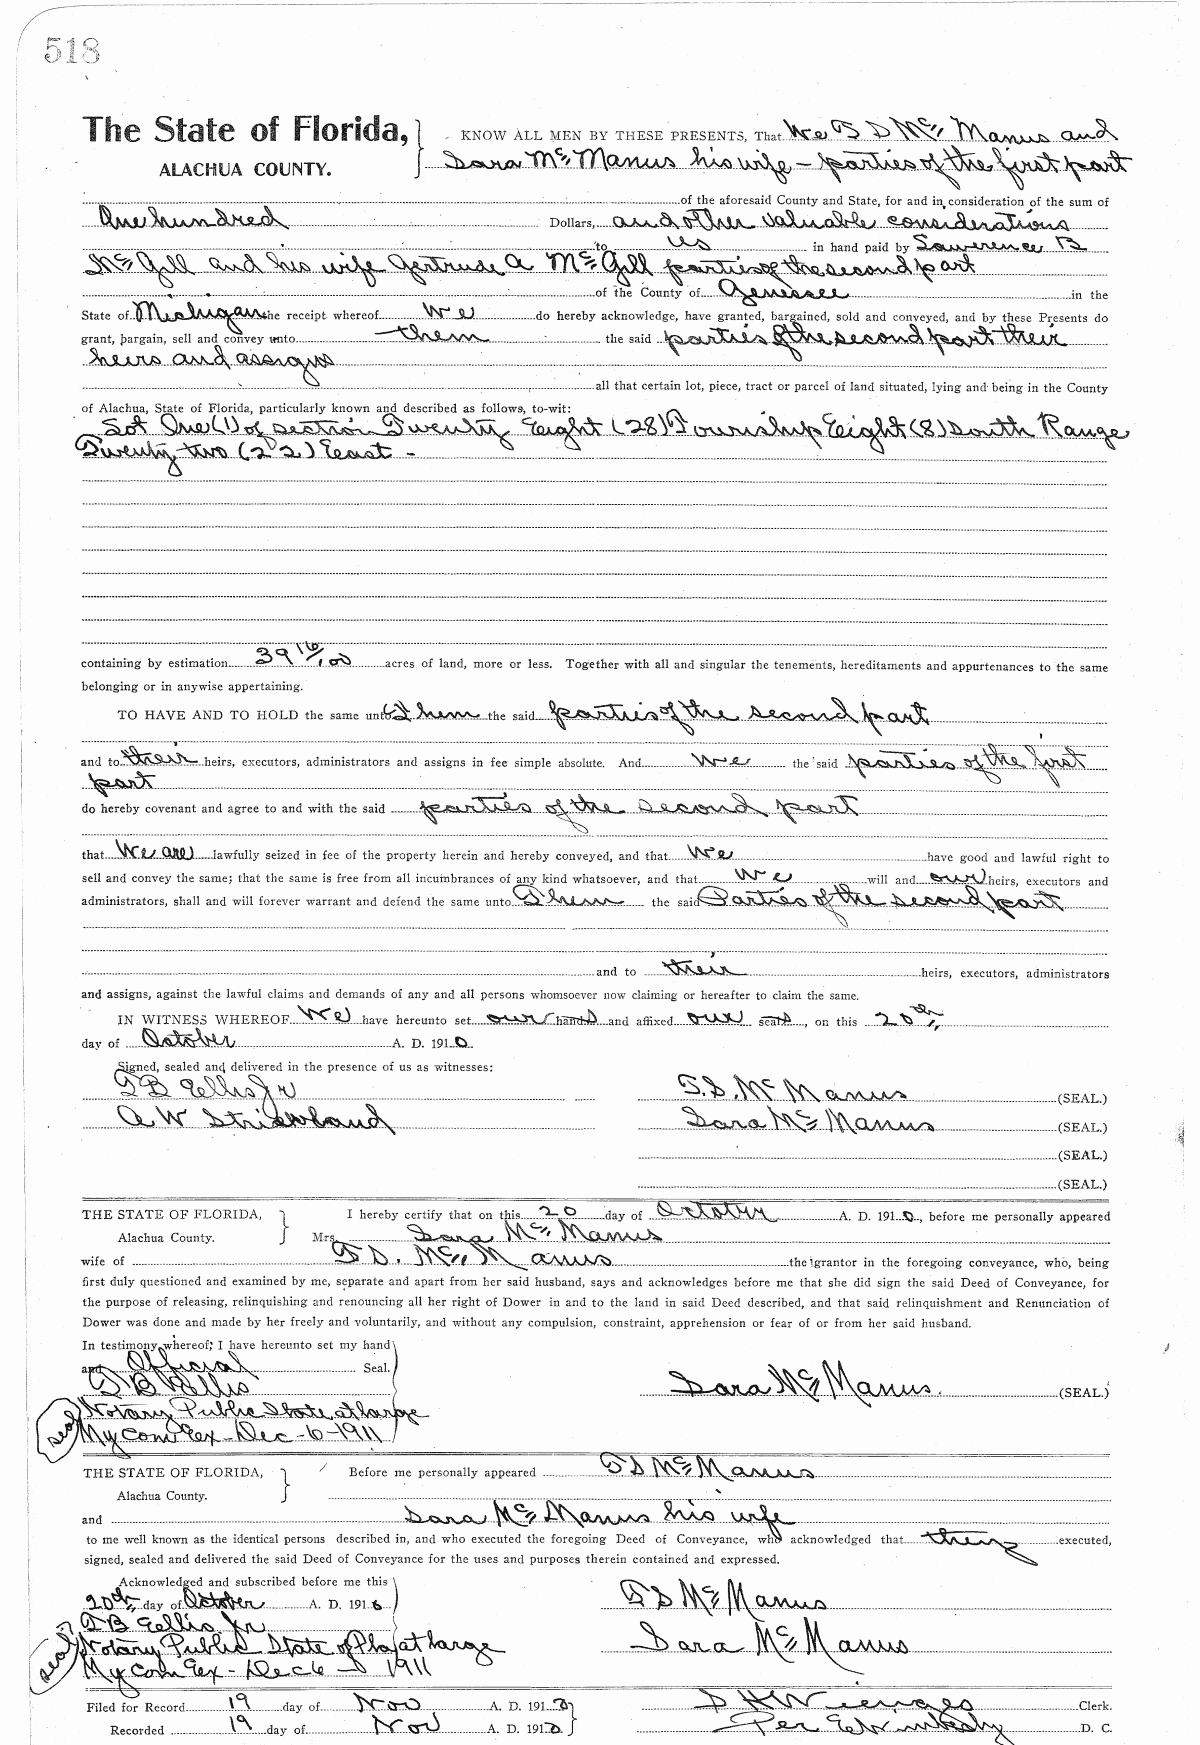 518
The State of Florida, KNOW ALL MEN BY THESE PRESENTS, That We T D Mc Manus and
ALACHUA COUNTY. Sara Mc Manus his wife – parties of the first part
of the aforesaid County and State, for and in consideration of the sum of
One hundred Dollars, and other valuable considerations
to us in hand paid by Lawerence B
Mc Gill and his wife Gertrude A Mc Gill parties of the second part
of the County of Genessee in the
State of Michigan the receipt whereof we do hereby acknowledge, have granted, bargained, sold and conveyed, and by these Presents do
grant, bargain, sell and convey unto them the said parties of the second part their
heirs and assigns
all that certain lot, piece, tract or parcel of land situated, lying and being in the County
of Alachua, State of Florida, particularly known and described as follows, to-wit:
Lot One (1) of section Twenty Eight (28) Township Eight (8) South Range
Twenty two (22) East -
containing by estimation 39 16/100 acres of land, more or less. Together with all and singular the tenements, hereditaments and appurtenances to the same
belonging or in anywise appertaining.
TO HAVE AND TO HOLD the same unto Them the said parties of the second part
and to their heirs, executors, administrators and assigns in fee simple absolute. And we the said parties of the first
part
do hereby covenant and agree to and with the said parties of the second part
that We are lawfully seized in fee of the property herein and hereby conveyed, and that we have good and lawful right to
sell and convey the same; that the same is free from all incumbrances of any kind whatsoever, and that we will and our heirs, executors and
administrators, shall and will forever warrant and defend the same unto Them the said Parties of the second part
and to their heirs, executors, administrators
and assigns, against the lawful claims and demands of any and all persons whomsoever now claiming or hereafter to claim the same.
IN WITNESS WHEREOF We have hereunto set our hands and affixed our seals, on this 20th
day of October A. D. 1910
Signed, sealed and delivered in the presence of us as witnesses:
T B Ellis Jr T. D. Mc Manus (SEAL.)
A W Strickland Sara Mc Manus (SEAL.)
(SEAL.)
(SEAL.)
THE STATE OF FLORIDA, I hereby certify that on this 20 day of October A. D. 1910, before me personally appeared
Alachua County. Mrs. Sara Mc Manus
wife of T D. Mc Manus the grantor in the foregoing conveyance, who, being
first duly questioned and examined by me, separate and apart from her said husband, says and acknowledges before me that she did sign the said Deed of Conveyance, for
the purpose of releasing, relinquishing and renouncing all her right of Dower in and to the land in said Deed described, and that said relinquishment and Renunciation of
Dower was done and made by her freely and voluntarily, and without any compulsion, constraint, apprehension or fear of or from her said husband.
In testimony whereof, I have hereunto set my hand
and Official Seal.
T B Ellis Sara Mc Manus. (SEAL.)
seal Notary Public State at large
My Com Ex - Dec - 6 - 1911
THE STATE OF FLORIDA, Before me personally appeared T D Mc Manus
Alachua County.
and Sara Mc Manus his wife
to me well known as the identical persons described in, and who executed the foregoing Deed of Conveyance, who acknowledged that they executed,
signed, sealed and delivered the said Deed of Conveyance for the uses and purposes therein contained and expressed.
Acknowledged and subscribed before me this
20th day of October A. D. 1910 T D Mc Manus
T B Ellis Jr
seal Notary Public State of Fla at large Sara Mc Manus
My Com Ex - Dec 6 - 1911
Filed for Record 19 day of Nov A. D. 1910 Clerk.
Recorded 19 day of Nov A. D. 1910 Per D. C.